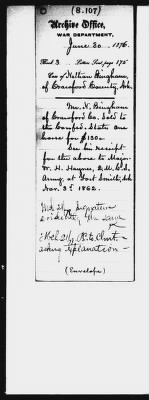 (8.107)
Archive Office,
WAR DEPARTMENT,
June 30, 1876.
Book 3 Letters Sent, page 175
Case of William Bingham,
of Crawford County, Ark.
Mr. W. Bingham
of Crawford Co. sold to
the Confed. States one
horse for $130.—
See his receipt
for the above to Major
W. H. Haynes, Q.M. C.S.
Army, at Fort Smith, Ark.
Nov. 3d 1862.
signature
evidently the same
asking explanation —
(Envelope)